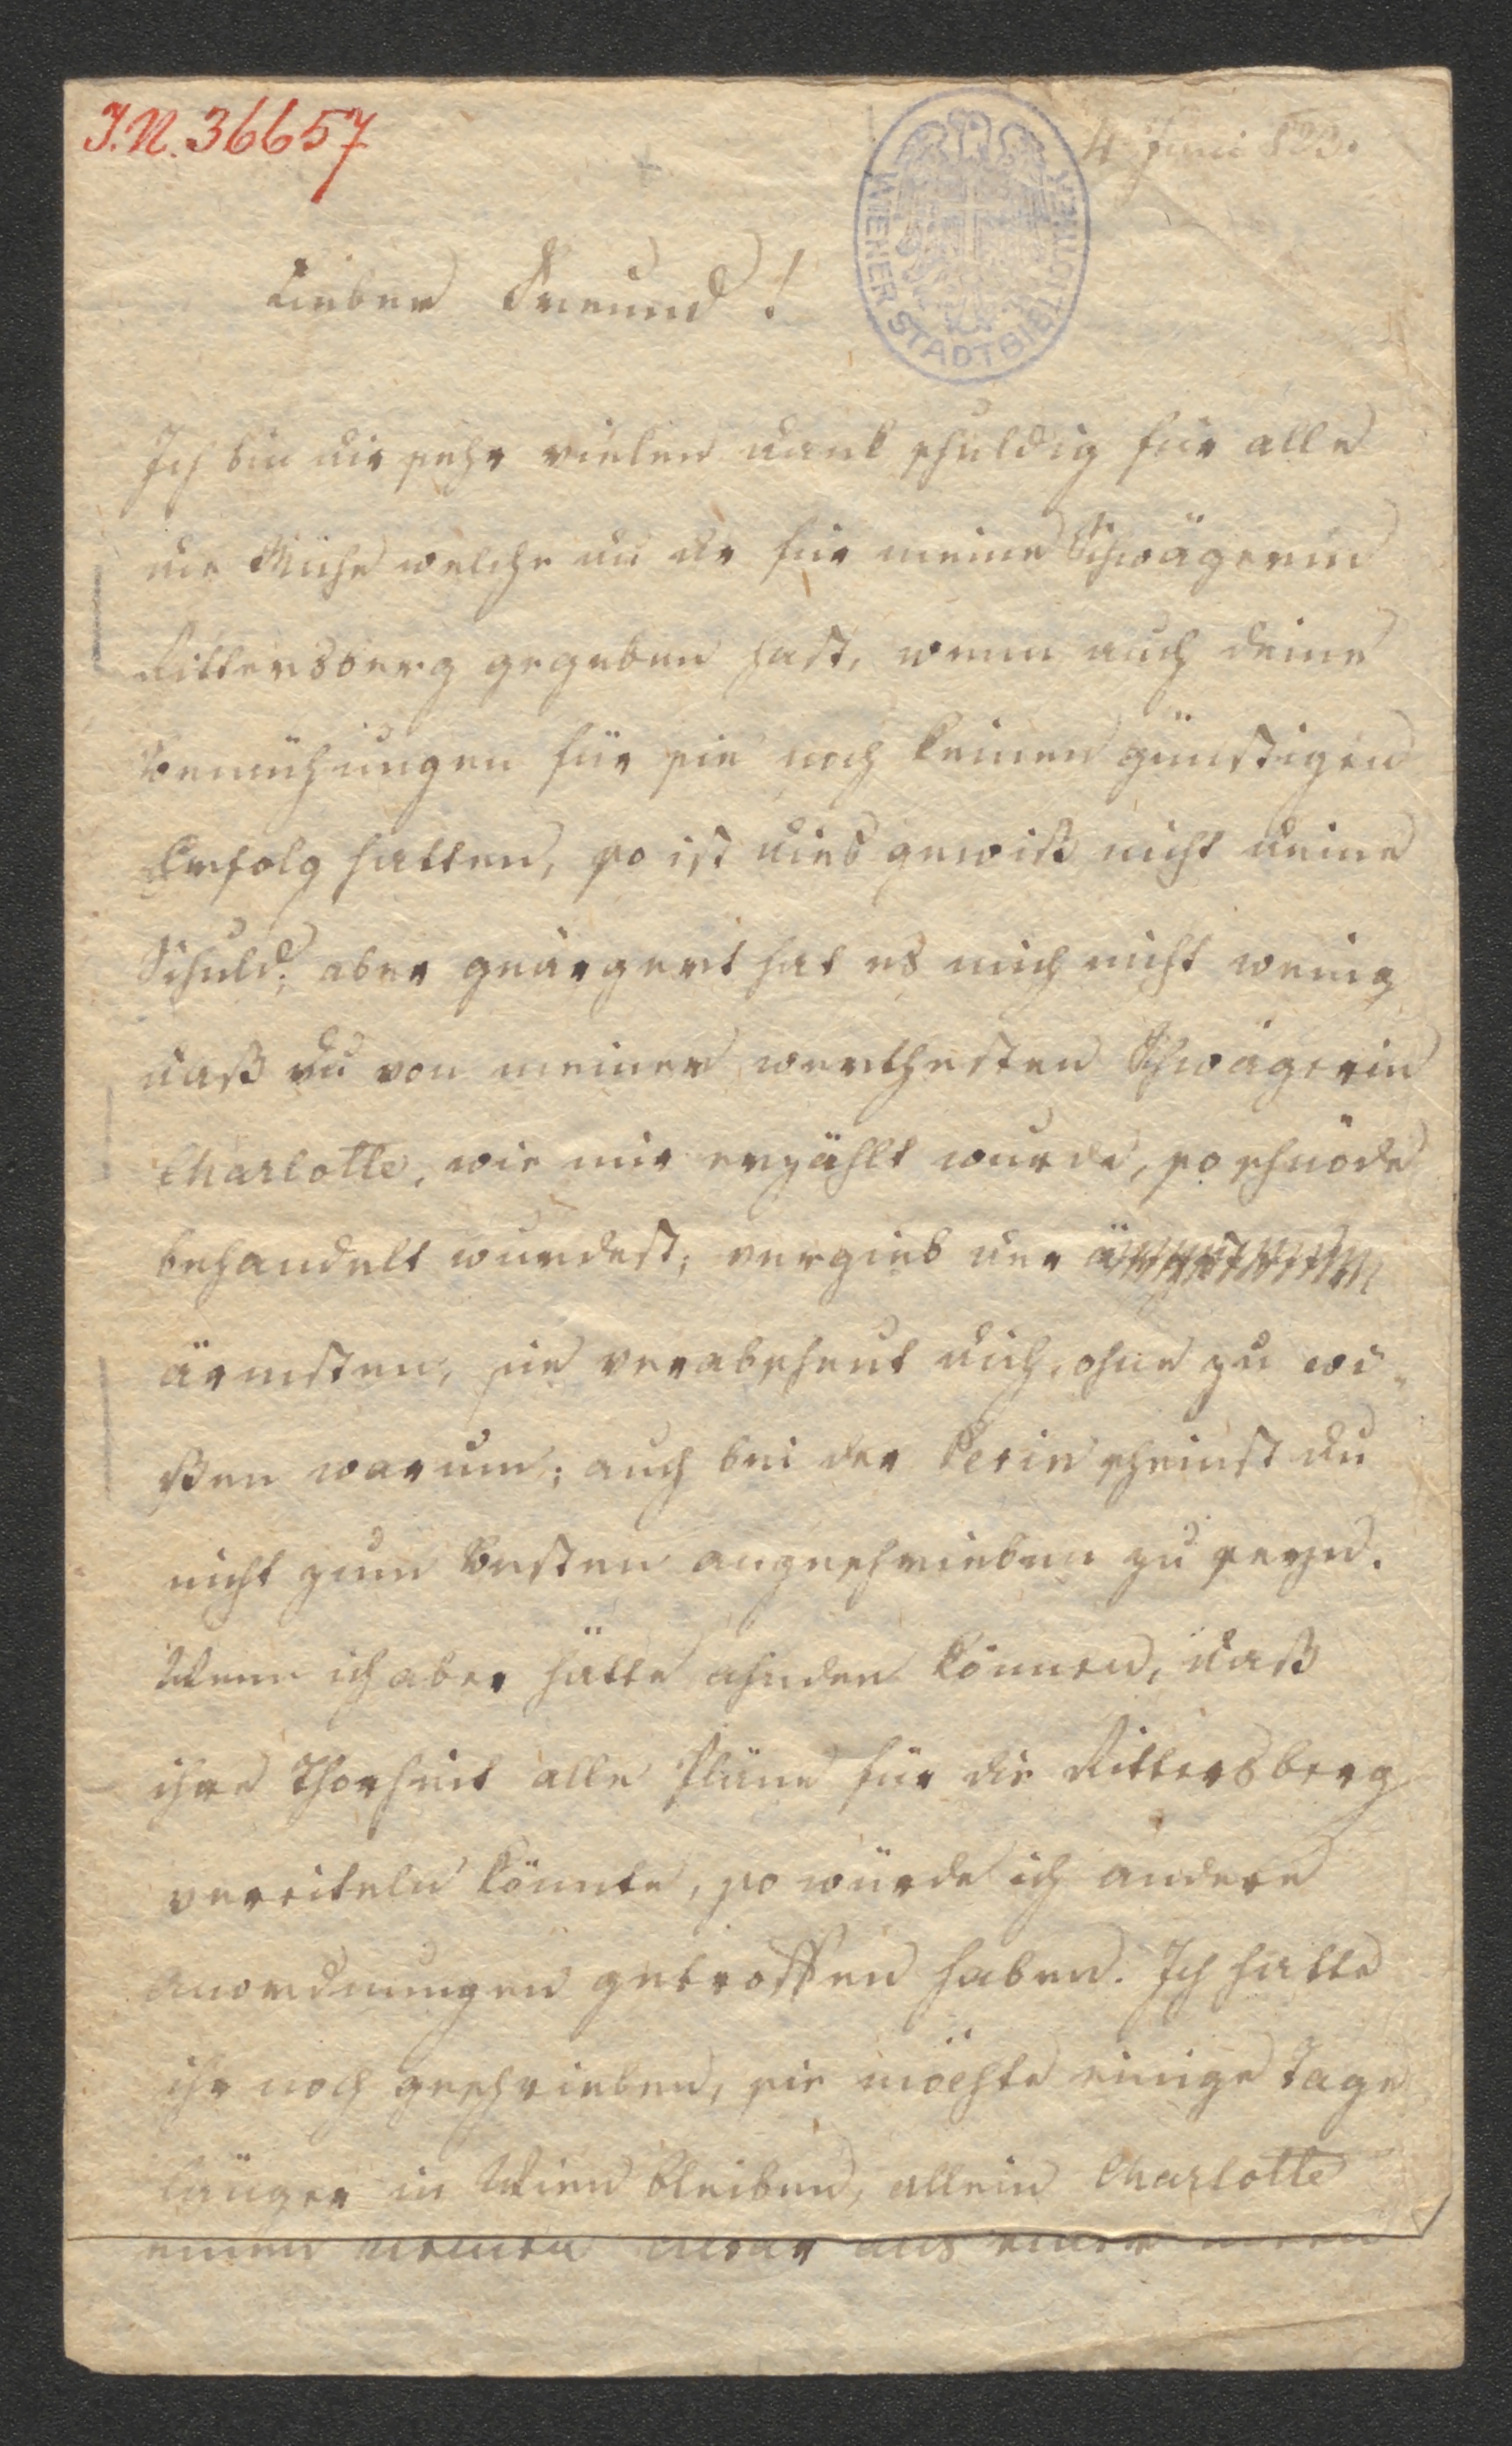 I.N. 36657
4 Juni 833.
WIENER STADTBIBLIOTHEK
Lieber Freund!
Ich bin dir sehr vielen dank schuldig für alle
die Mühe welche du dir für meine Schwägerin
Rittersberg gegeben hast, wenn auch deine
Bemühungen für sie noch keinen günstigen
Erfolg hatten, so ist dies gewiß nicht deine
Schuld; aber geärgert hat es mich nicht wenig
daß du von meiner werthesten Schwägerin
Charlotte, wie mir erzählt wurde, so schnöde
behandelt wurdest; vergieb der
ärmsten, sie verabscheut dich, ohne zu wi„
ßen warum; auch bei der Perin scheinst du
nicht zum Besten angeschrieben zu seyn.
Wenn ich aber hätte ahnden können, daß
ihre Thorheit alle Pläne für die Rittersberg
vereiteln könnte, so würde ich andere
Anordnungen getroffen haben. Ich hatte
ihr noch geschrieben, sie möchte einige Tage
länger in Wien bleiben, allein Charlotte